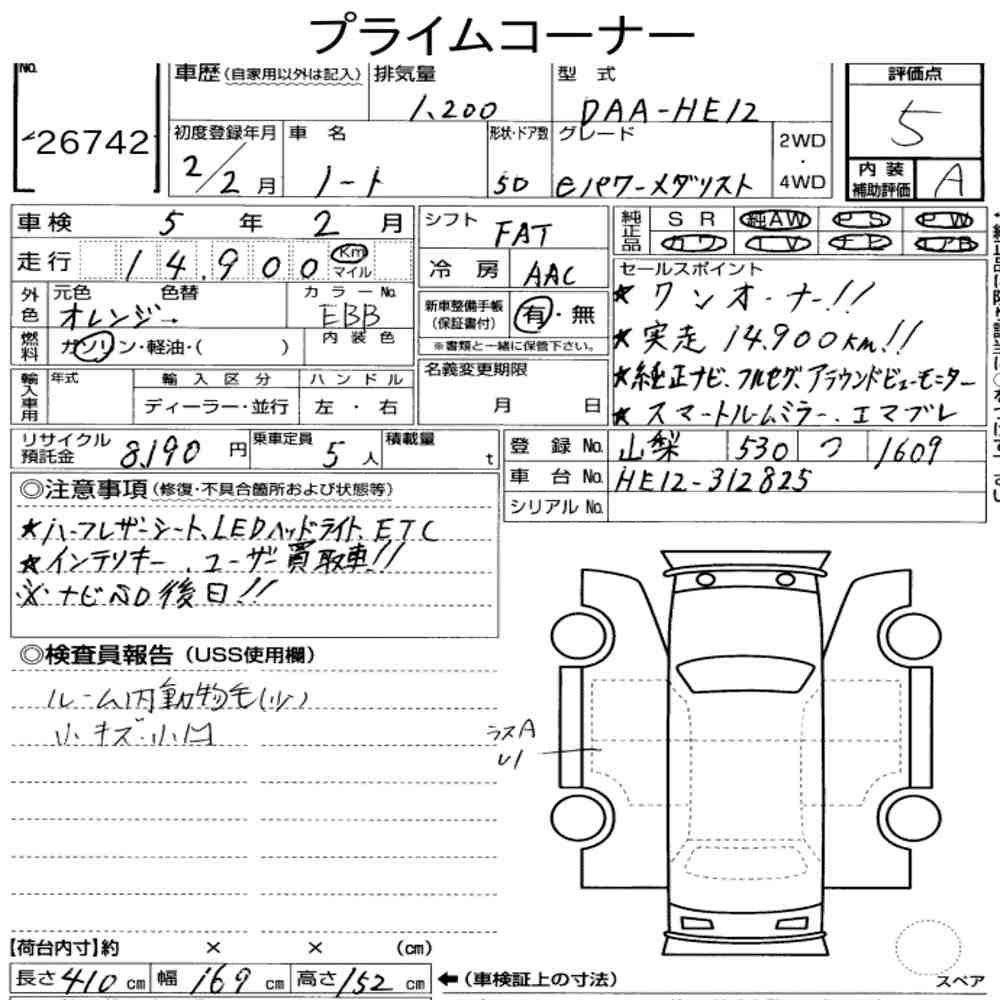 プライムコーナー
No. 26742
車歴 (自家用以外は記入) 排気量 1,200 型式 DAA-HE12
初度登録年月 2/2月 車名 ノート 形状・ドア数 5D グレード eパワーメダリスト 2WD・4WD
評価点 5
内装補助評価 A
車検 5年 2月
走行 14,900 Km マイル
外色 元色 オレンジー 色替 カラーNo. EBB
燃料 ガソリン・軽油・( ) 内装色
輸入車用 年式 輸入区分 ディーラー・並行 ハンドル 左・右
シフト FAT
冷房 AAC
新車整備手帳 (保証書付) 有・無
※書類と一緒に保管下さい。
名義変更期限 月 日
純正品 SR 純AW PS PW
カワ TV ナビ エアB
セールスポイント
★ワンオーナー!!
★実走14,900Km!!
★純正ナビ、フルセグ、アラウンドビューモニター
★スマートルームミラー、エマブレ
リサイクル預託金 8,190円 乗車定員 5人 積載量 t
登録No. 山梨 530 つ 1609
車台No. HE12-312825
シリアルNo.
◎注意事項 (修復・不具合箇所および状態等)
★ハーフレザーシート、LEDヘッドライト、ETC
★インテリキー、ユーザー買取車!!
※ナビSD後日!!
◎検査員報告 (USS使用欄)
ルーム内動物毛(少)
小キズ・小凹
ラスA
U1
【荷台内寸】約 × × (cm)
長さ 410 cm 幅 169 cm 高さ 152 cm ←(車検証上の寸法)
スペア